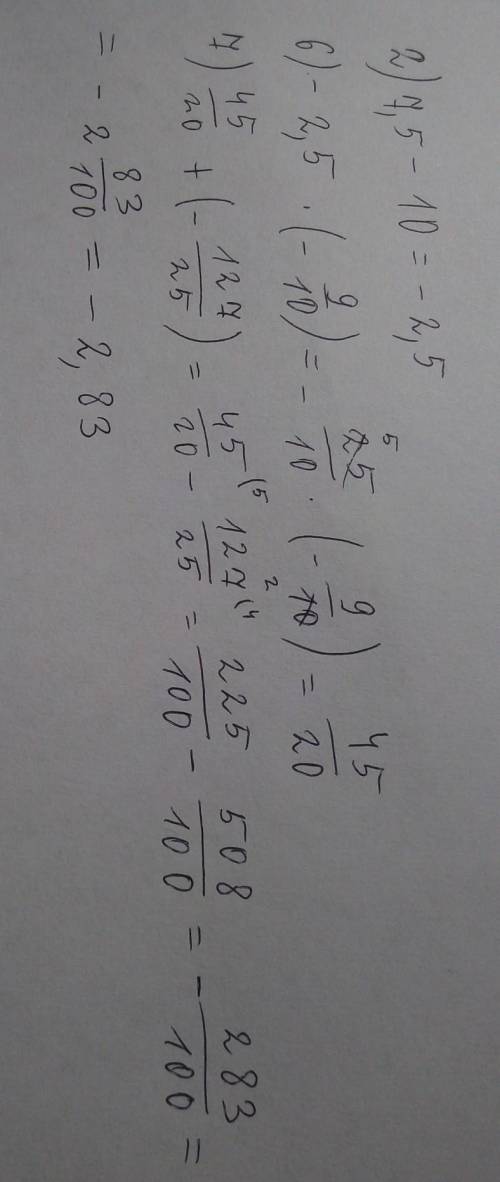 2) 7,5 - 10 = - 2,5
6) - 2,5 · (- 9/10) = - 25/10 · (- 9/10) = 45/20
7) 45/20 + (- 127/25) = 45/20 - 127/25 = 225/100 - 508/100 = - 283/100 =
= - 2 83/100 = - 2,83